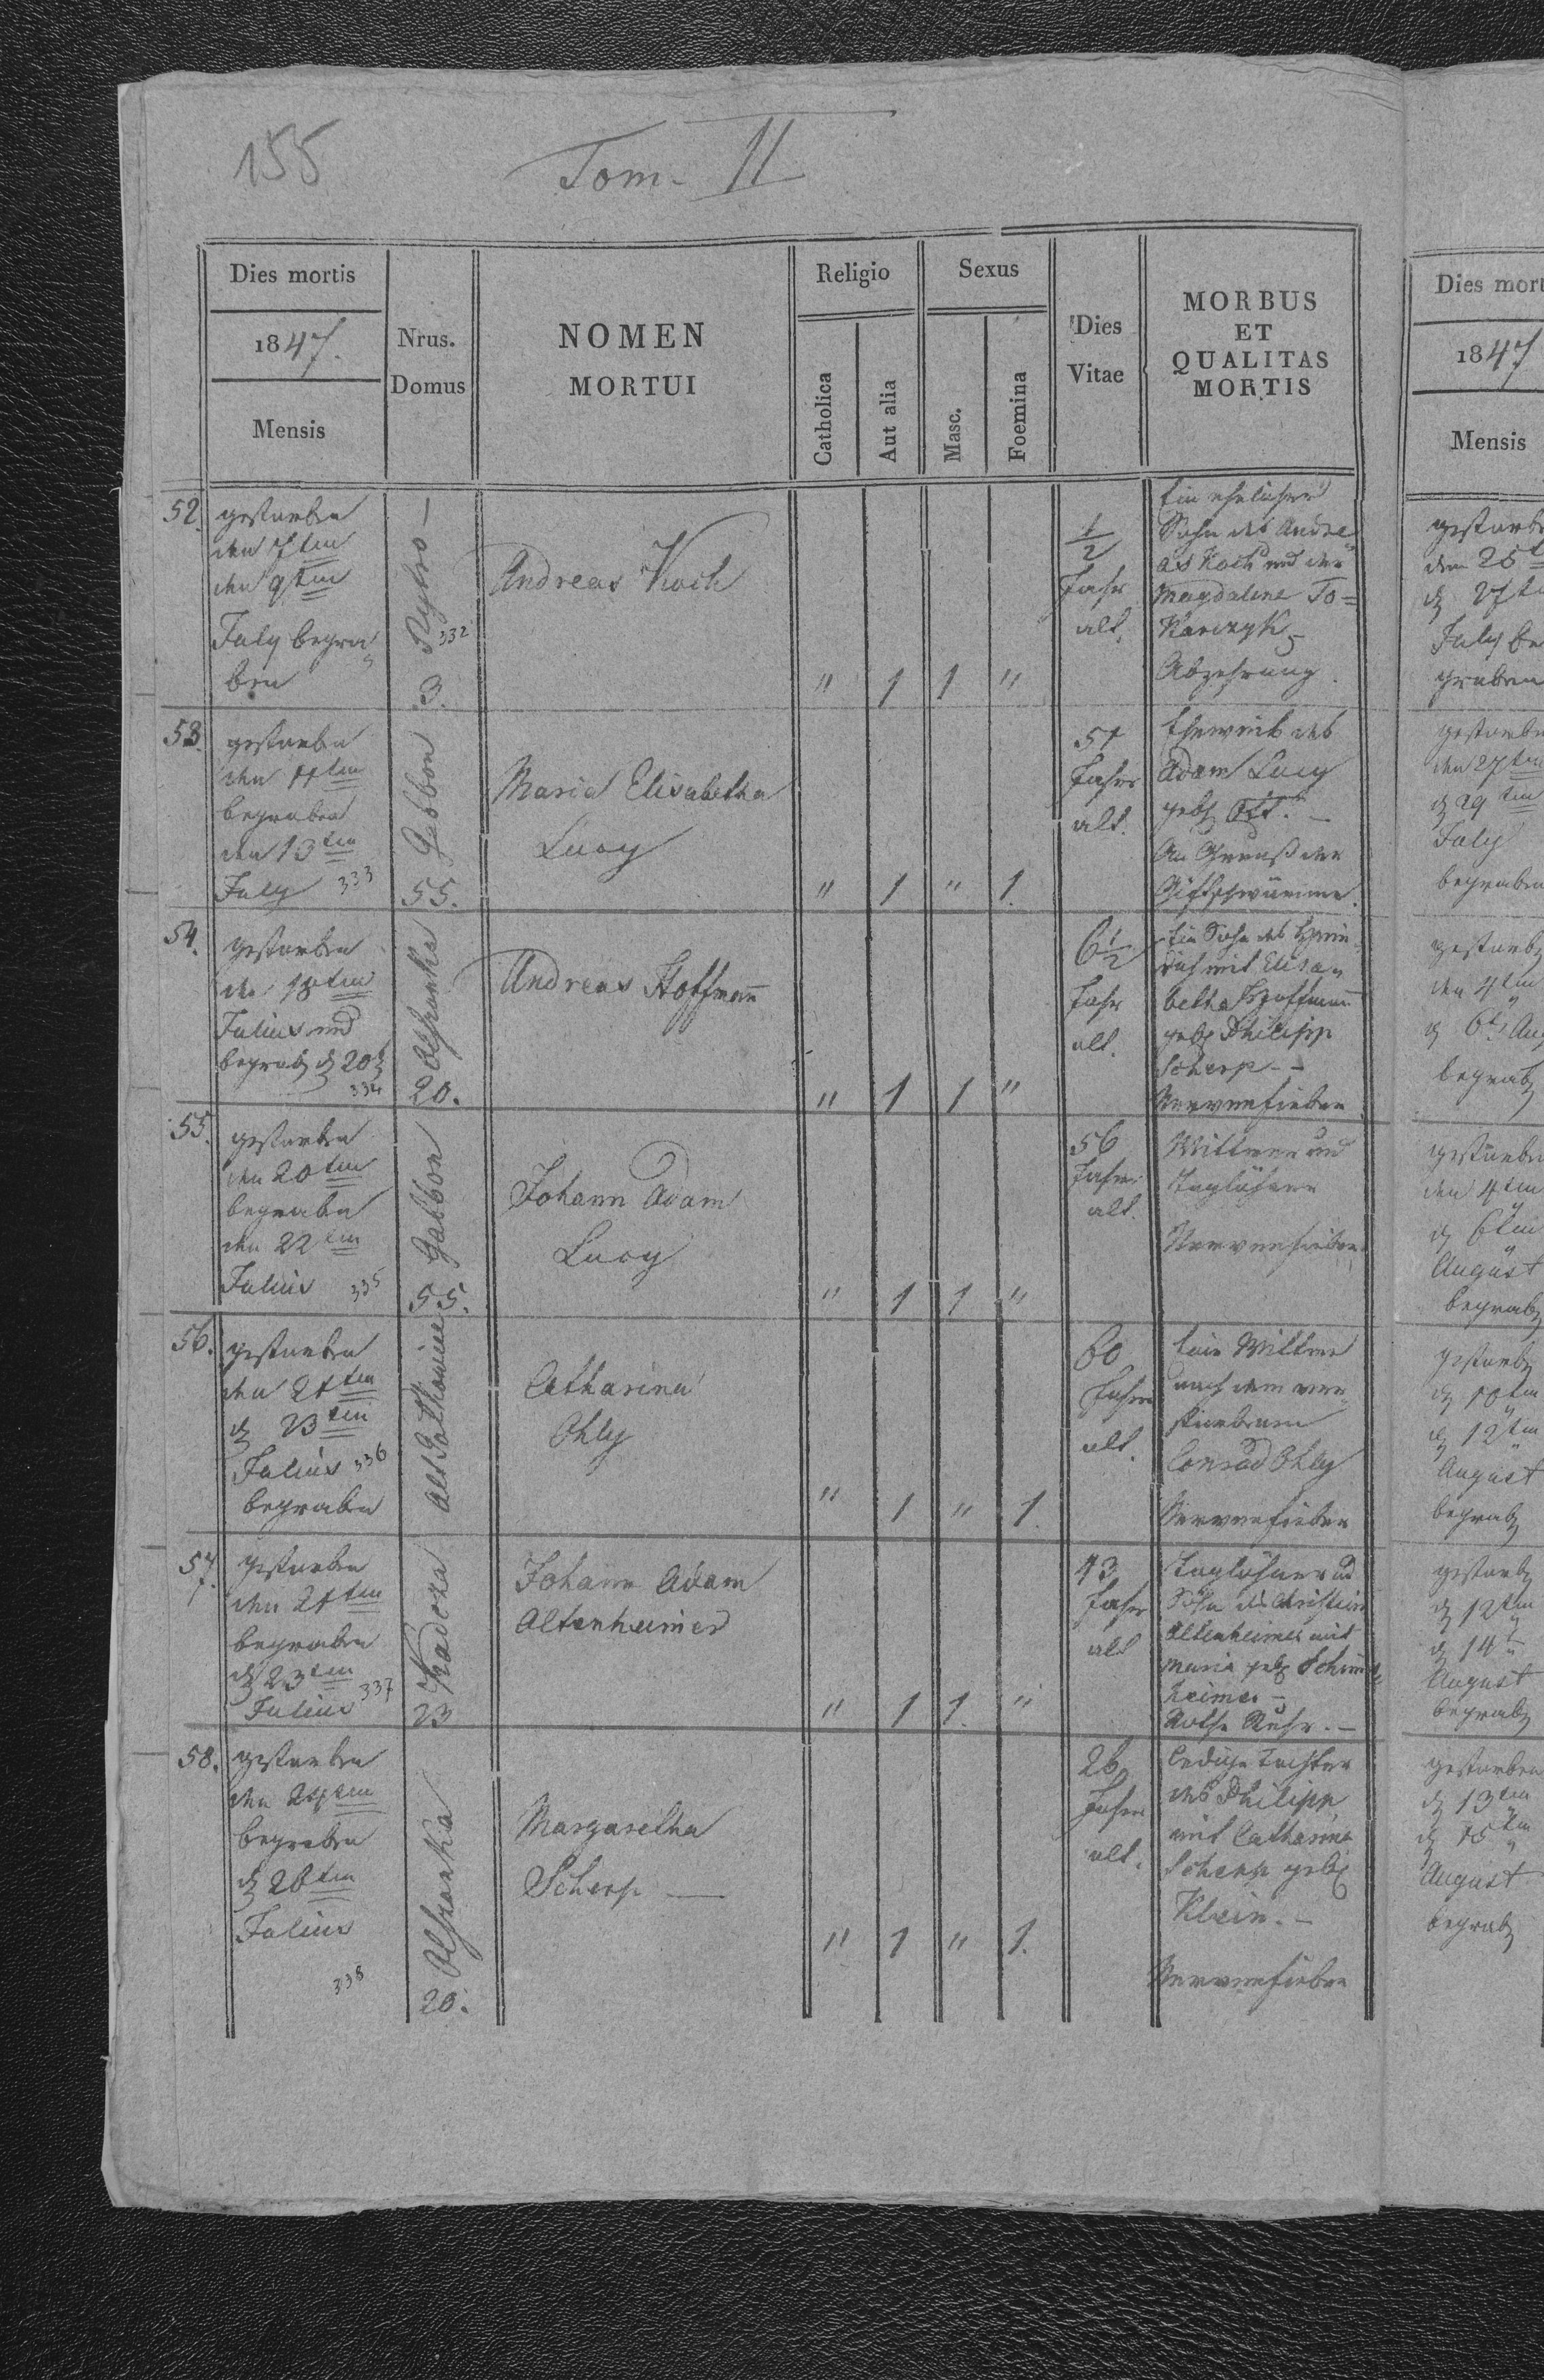 155
Tom. II
Dies mortis
1847.
Mensis
Nrus.
Domus
NOMEN
MORTUI
Religio
Catholica
Aut alia
Sexus
Masc.
Foemina
Dies
Vitae
MORBUS
ET
QUALITAS
MORTIS
52.
gestorben
den 7ten
den 9ten
July begra„
ben
332
3
Andreas Koch
" 1 1 "
1/2
Jahr
alt.
Ein ehelicher
Sohn des Andre„
as Koch und der
Magdalene To=
karczyk
Abzehrung.
53.
gestorben
den 11ten
begraben
den 13ten
July 333
Gabbon
55.
Maria Elisabetha
Lucy
" 1 " 1.
51
Jahre
alt.
Eheweib des
Adam Lucy
geb. Ott. –
An Genuß der
Giftschwämme.
54.
gestorben
den 18ten
Julius und
begrab d 20t
334
Olszanka
20.
Andreas Hoffmann
" 1 1 "
6 1/2
Jahr
alt.
Ein Sohn des Hein
rich mit Elisa„
betha Hoffmann
geb Philipp
Scherp. –
Nervenfieber
55.
gestorben
den 20ten
begraben
den 22ten
Julius 335
Gabbon
55.
Johann Adam
Lucy
" 1 1 "
56
Jahre
alt.
Wittwer und
Taglöhner
Nervenfieber
56.
gestorben
den 21ten
d 23ten
Julius 336
begraben
Catharina
Ohly
" 1 " 1.
60
Jahre
alt.
Eine Wittwe
nach dem ver„
storbenen
Conrad Ohly
Nervenfieber
57.
gestorben
den 21ten
begraben
d 23ten
Julius 337
Kadcza
23
Johann Adam
Altenheimer
" 1 1. "
43
Jahre
alt
Taglöhner und
Sohn des Christian
Altenheimer mit
Maria geb
heimer –
Rothe Ruhr. –
58.
gestorben
den 24ten
begraben
d 26ten
Julius
338
Olszanka
20.
Margaretha
Scherp —
" 1 " 1.
26
Jahre
alt.
ledige Tochter
des Philipp
mit Catharina
Scherp geb
Klein. –
Nervenfieber
Dies mort
1847
Mensis
gestorbe
den 25t
d 27te
July be
graben
gestorben
den 27ten
d 29ten
July
begraben
gestorb
den 4ten
d 6t Aug
begrab
gestorben
den 4ten
d 6ten
August
begrab
gestorb
d 10ten
d 12ten
August
begrab
gestorb
d 12ten
d 14t
August
begrab
gestorben
d 13ten
d 15ten
August
begrab